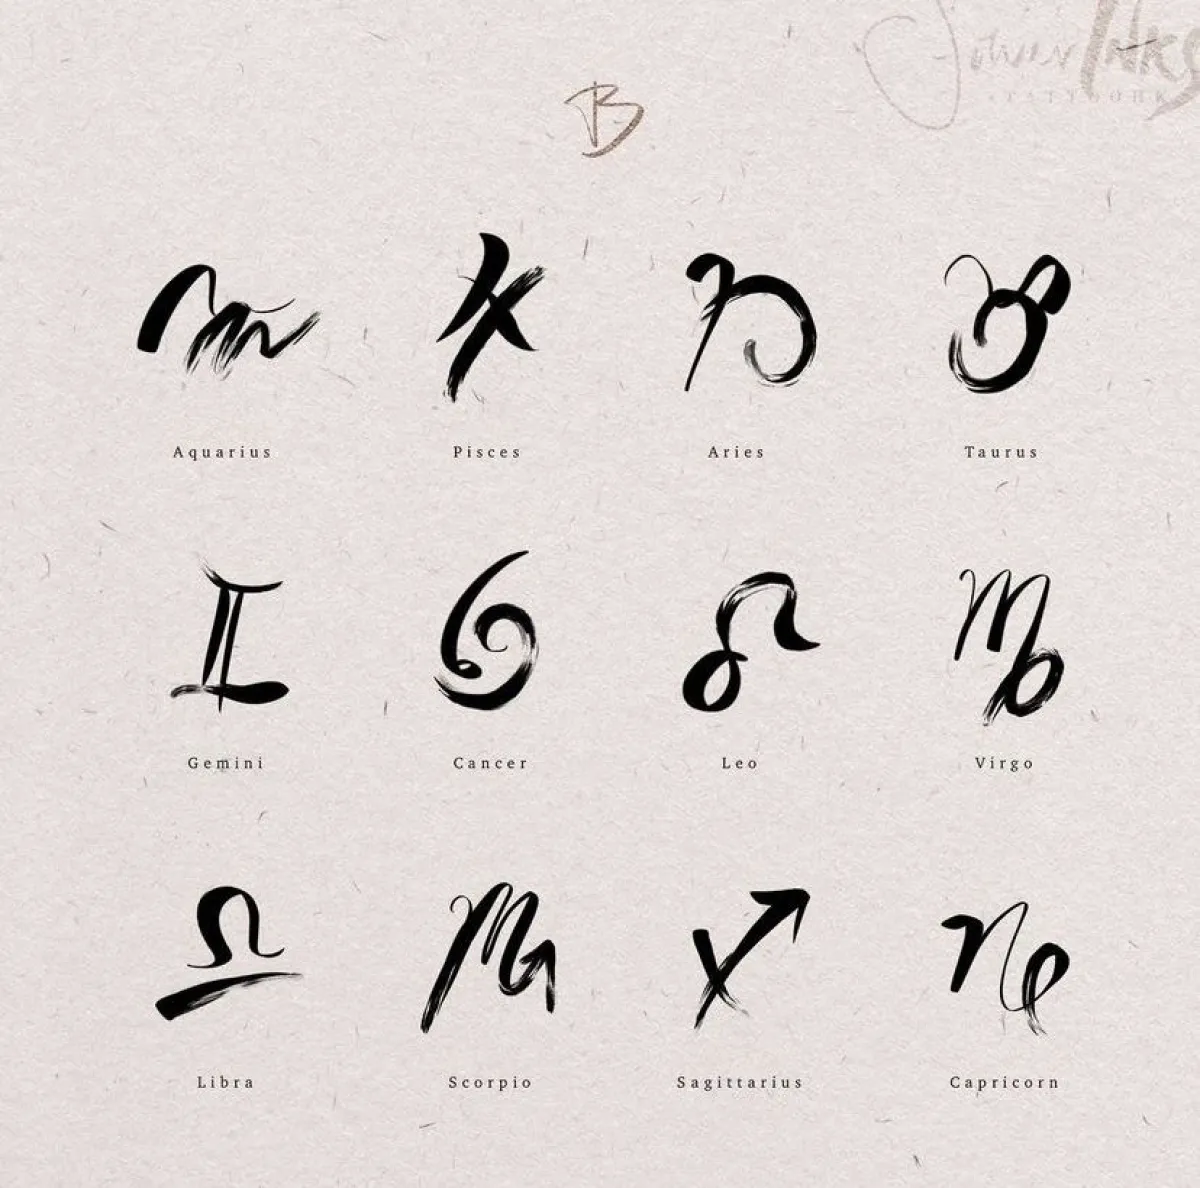 B
Aquarius Pisces Aries Taurus
Gemini Cancer Leo Virgo
Libra Scorpio Sagittarius Capricorn